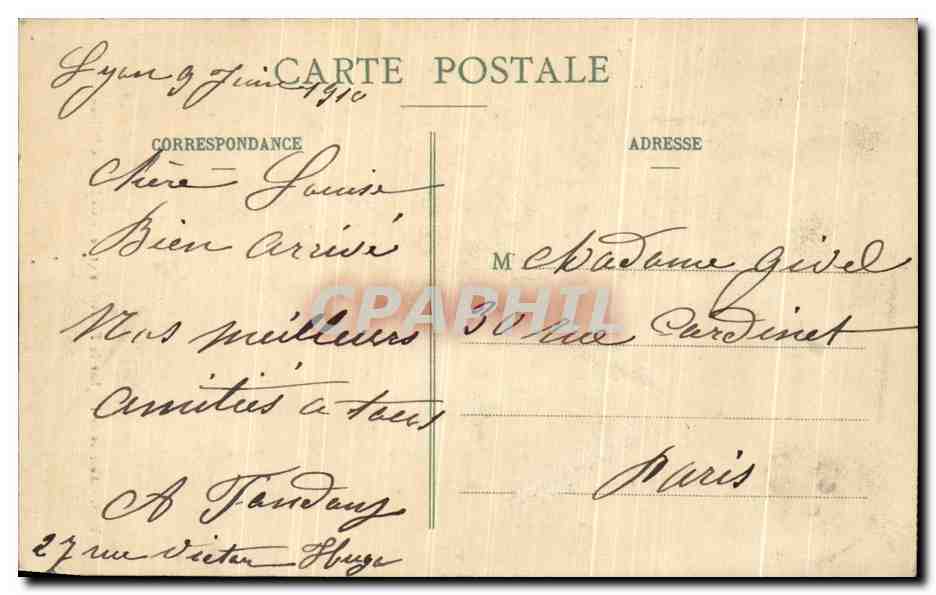 Lyon 9 Juin 1910
CARTE POSTALE
CORRESPONDANCE
Chère Louise
Bien arrivé
Nos meilleurs
amitiés a tous
A
27 rue Victor Hugo
ADRESSE
M Madame Givel
30 rue Cardinet
Paris
CPAPHIL